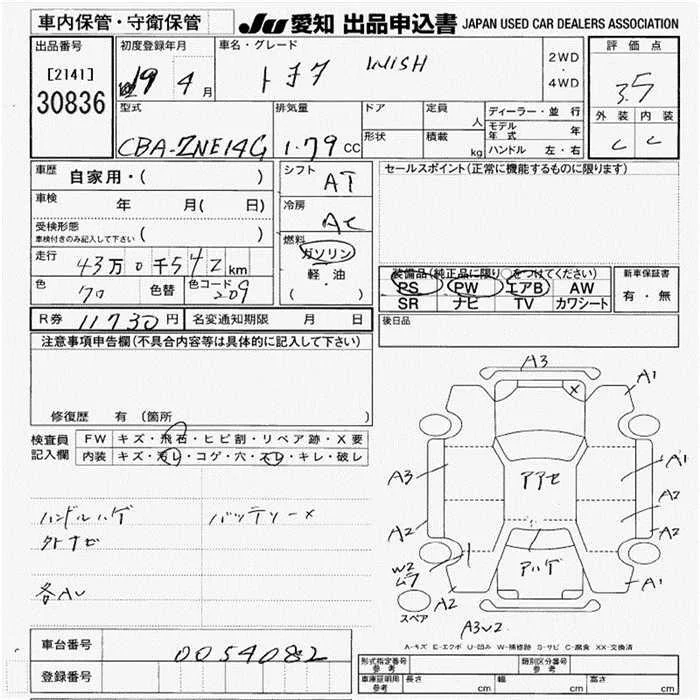 車内保管・守衛保管 JU 愛知 出品申込書 JAPAN USED CAR DEALERS ASSOCIATION
出品番号 初度登録年月 車名・グレード 2WD・4WD 評価点
[2141] 30836 19 4月 トヨタ WISH 3.5
型式 排気量 ドア 定員 人 ディーラー・並行 外装 内装
CBA-ZNE14G 1.79 cc 形状 積載 kg モデル年式 年 C C
ハンドル 左・右
車歴 自家用・( ) シフト AT セールスポイント(正常に機能するものに限ります)
車検 年 月( 日) 冷房 AC
受検形態 車検付きのみ記入して下さい ( ) 燃料 ガソリン
走行 43万0千542km 軽油
色 70 色替 色コード 209 ・( )
装備品(純正品に限り○をつけてください) 新車保証書
PS PW エアB AW 有・無
SR ナビ TV カワシート
R券 11730円 名変通知期限 月 日 後日品
注意事項申告欄(不具合内容等は具体的に記入して下さい)
修復歴 有(箇所
検査員記入欄 FW キズ・飛石・ヒビ割・リペア跡・X要
内装 キズ・汚レ・コゲ・穴・スレ・キレ・破レ
ハンドルハゲ バッテリー×
各AU
A3
A1
X
A3
A1
A2
A2
A2
W2
A2
A1
スペア
A3U2
A-キズ E-エクボ U-凹み W-補修跡 S-サビ C-腐食 XX-交換済
車台番号 0054082
登録番号
形式指定番号 参考 類別区分番号 参考
車庫証明用 参考 長さ cm 幅 cm 高さ cm